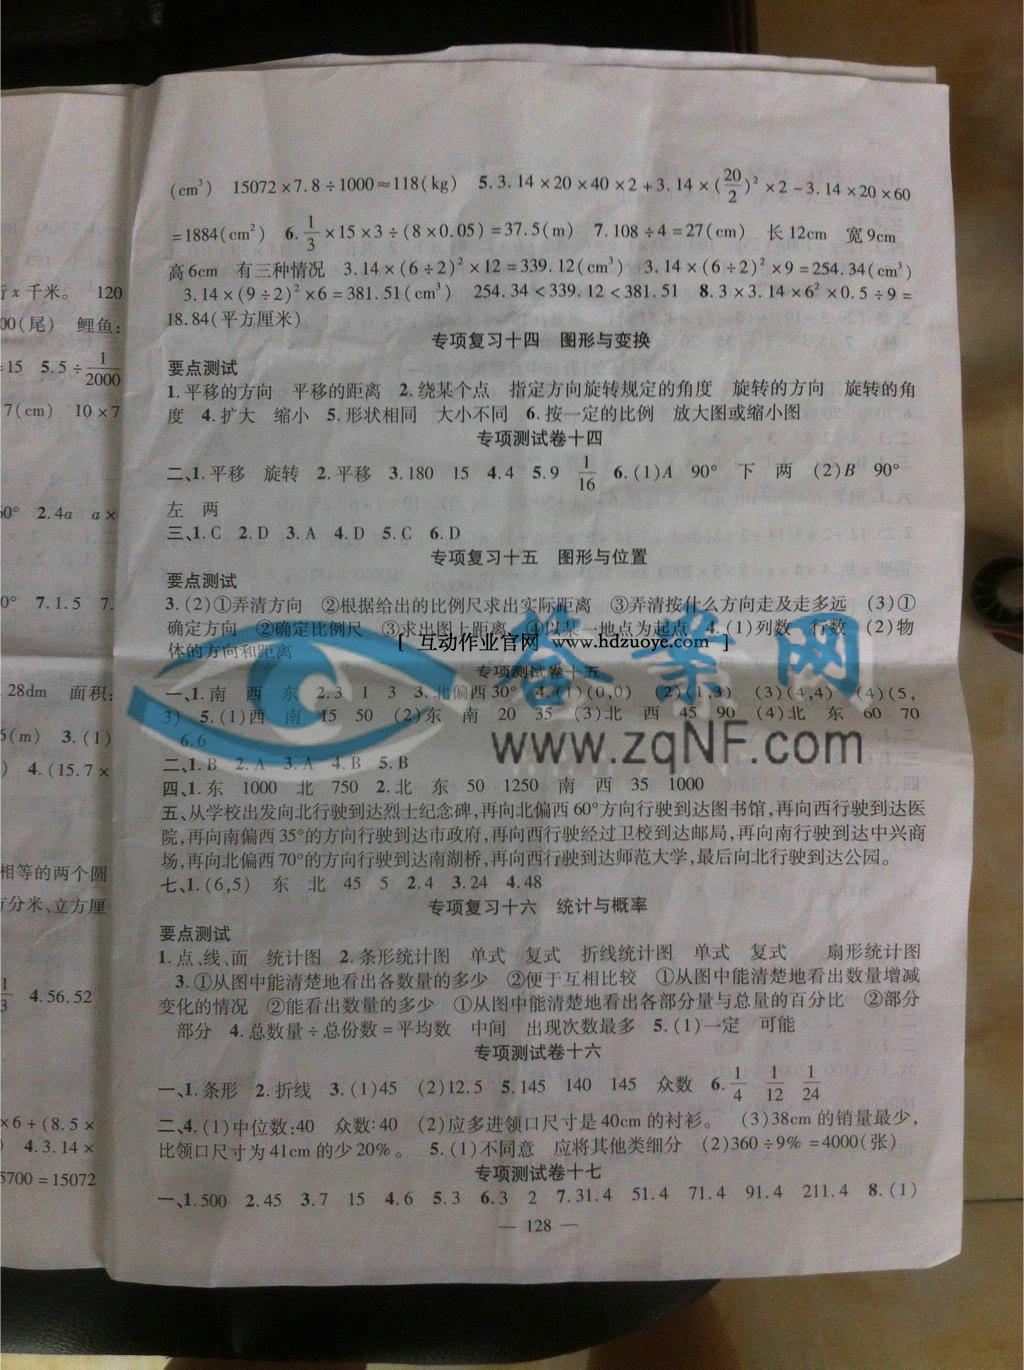 行x千米。 120
00(尾) 鲤鱼:
=15 5.5÷1/2000
7(cm) 10×7
0° 2.4a a×
0° 7.1.5 7.
28dm 面积:
6(m) 3.(1)
) 4.(15.7×
相等的两个圆
方分米、立方厘
1/3 4.56.52
×6+(8.5×
4.3.14×
5700=15072
(cm³) 15072×7.8÷1000≈118(kg) 5.3.14×20×40×2+3.14×(20/2)²×2-3.14×20×60
=1884(cm²) 6.1/3×15×3÷(8×0.05)=37.5(m) 7.108÷4=27(cm) 长12cm 宽9cm
高6cm 有三种情况 3.14×(6÷2)²×12=339.12(cm³) 3.14×(6÷2)²×9=254.34(cm³)
3.14×(9÷2)²×6=381.51(cm³) 254.34<339.12<381.51 8.3×3.14×6²×0.5÷9=
18.84(平方厘米)
专项复习十四 图形与变换
要点测试
1.平移的方向 平移的距离 2.绕某个点 指定方向旋转规定的角度 旋转的方向 旋转的角
度 4.扩大 缩小 5.形状相同 大小不同 6.按一定的比例 放大图或缩小图
专项测试卷十四
二、1.平移 旋转 2.平移 3.180 15 4.4 5.9 1/16 6.(1)A 90° 下 两 (2)B 90°
左 两
三、1.C 2.D 3.A 4.D 5.C 6.D
专项复习十五 图形与位置
要点测试
3.(2)①弄清方向 ②根据给出的比例尺求出实际距离 ③弄清按什么方向走及走多远 (3)①
确定方向 ②确定比例尺 ③求出图上距离 ④以某一地点为起点 4.(1)列数 行数 (2)物
体的方向和距离
[ 互动作业官网 www.hdzuoye.com ]
专项测试卷十五
一、1.南 西 东 2.3 1 3 3.北偏西30° 4.(1)(0,0) (2)(1,3) (3)(4,4) (4)(5,
3) 5.(1)西 南 15 50 (2)东 南 20 35 (3)北 西 45 90 (4)北 东 60 70
6.6
二、1.B 2.A 3.A 4.B 5.B
四、1.东 1000 北 750 2.北 东 50 1250 南 西 35 1000
www.zqNF.com
五、从学校出发向北行驶到达烈士纪念碑,再向北偏西60°方向行驶到达图书馆,再向西行驶到达医
院,再向南偏西35°的方向行驶到达市政府,再向西行驶经过卫校到达邮局,再向南行驶到达中兴商
场,再向北偏西70°的方向行驶到达南湖桥,再向西行驶到达师范大学,最后向北行驶到达公园。
七、1.(6,5) 东 北 45 5 2.4 3.24 4.48
专项复习十六 统计与概率
要点测试
1.点、线、面 统计图 2.条形统计图 单式 复式 折线统计图 单式 复式 扇形统计图
3.①从图中能清楚地看出各数量的多少 ②便于互相比较 ①从图中能清楚地看出数量增减
变化的情况 ②能看出数量的多少 ①从图中能清楚地看出各部分量与总量的百分比 ②部分
部分 4.总数量÷总份数=平均数 中间 出现次数最多 5.(1)一定 可能
专项测试卷十六
一、1.条形 2.折线 3.(1)45 (2)12.5 5.145 140 145 众数 6.1/4 1/12 1/24
二、4.(1)中位数:40 众数:40 (2)应多进领口尺寸是40cm的衬衫。 (3)38cm的销量最少,
比领口尺寸为41cm的少20%。 5.(1)不同意 应将其他类细分 (2)360÷9%=4000(张)
专项测试卷十七
一、1.500 2.45 3.7 15 4.6 5.3 6.3 2 7.31.4 51.4 71.4 91.4 211.4 8.(1)
— 128 —